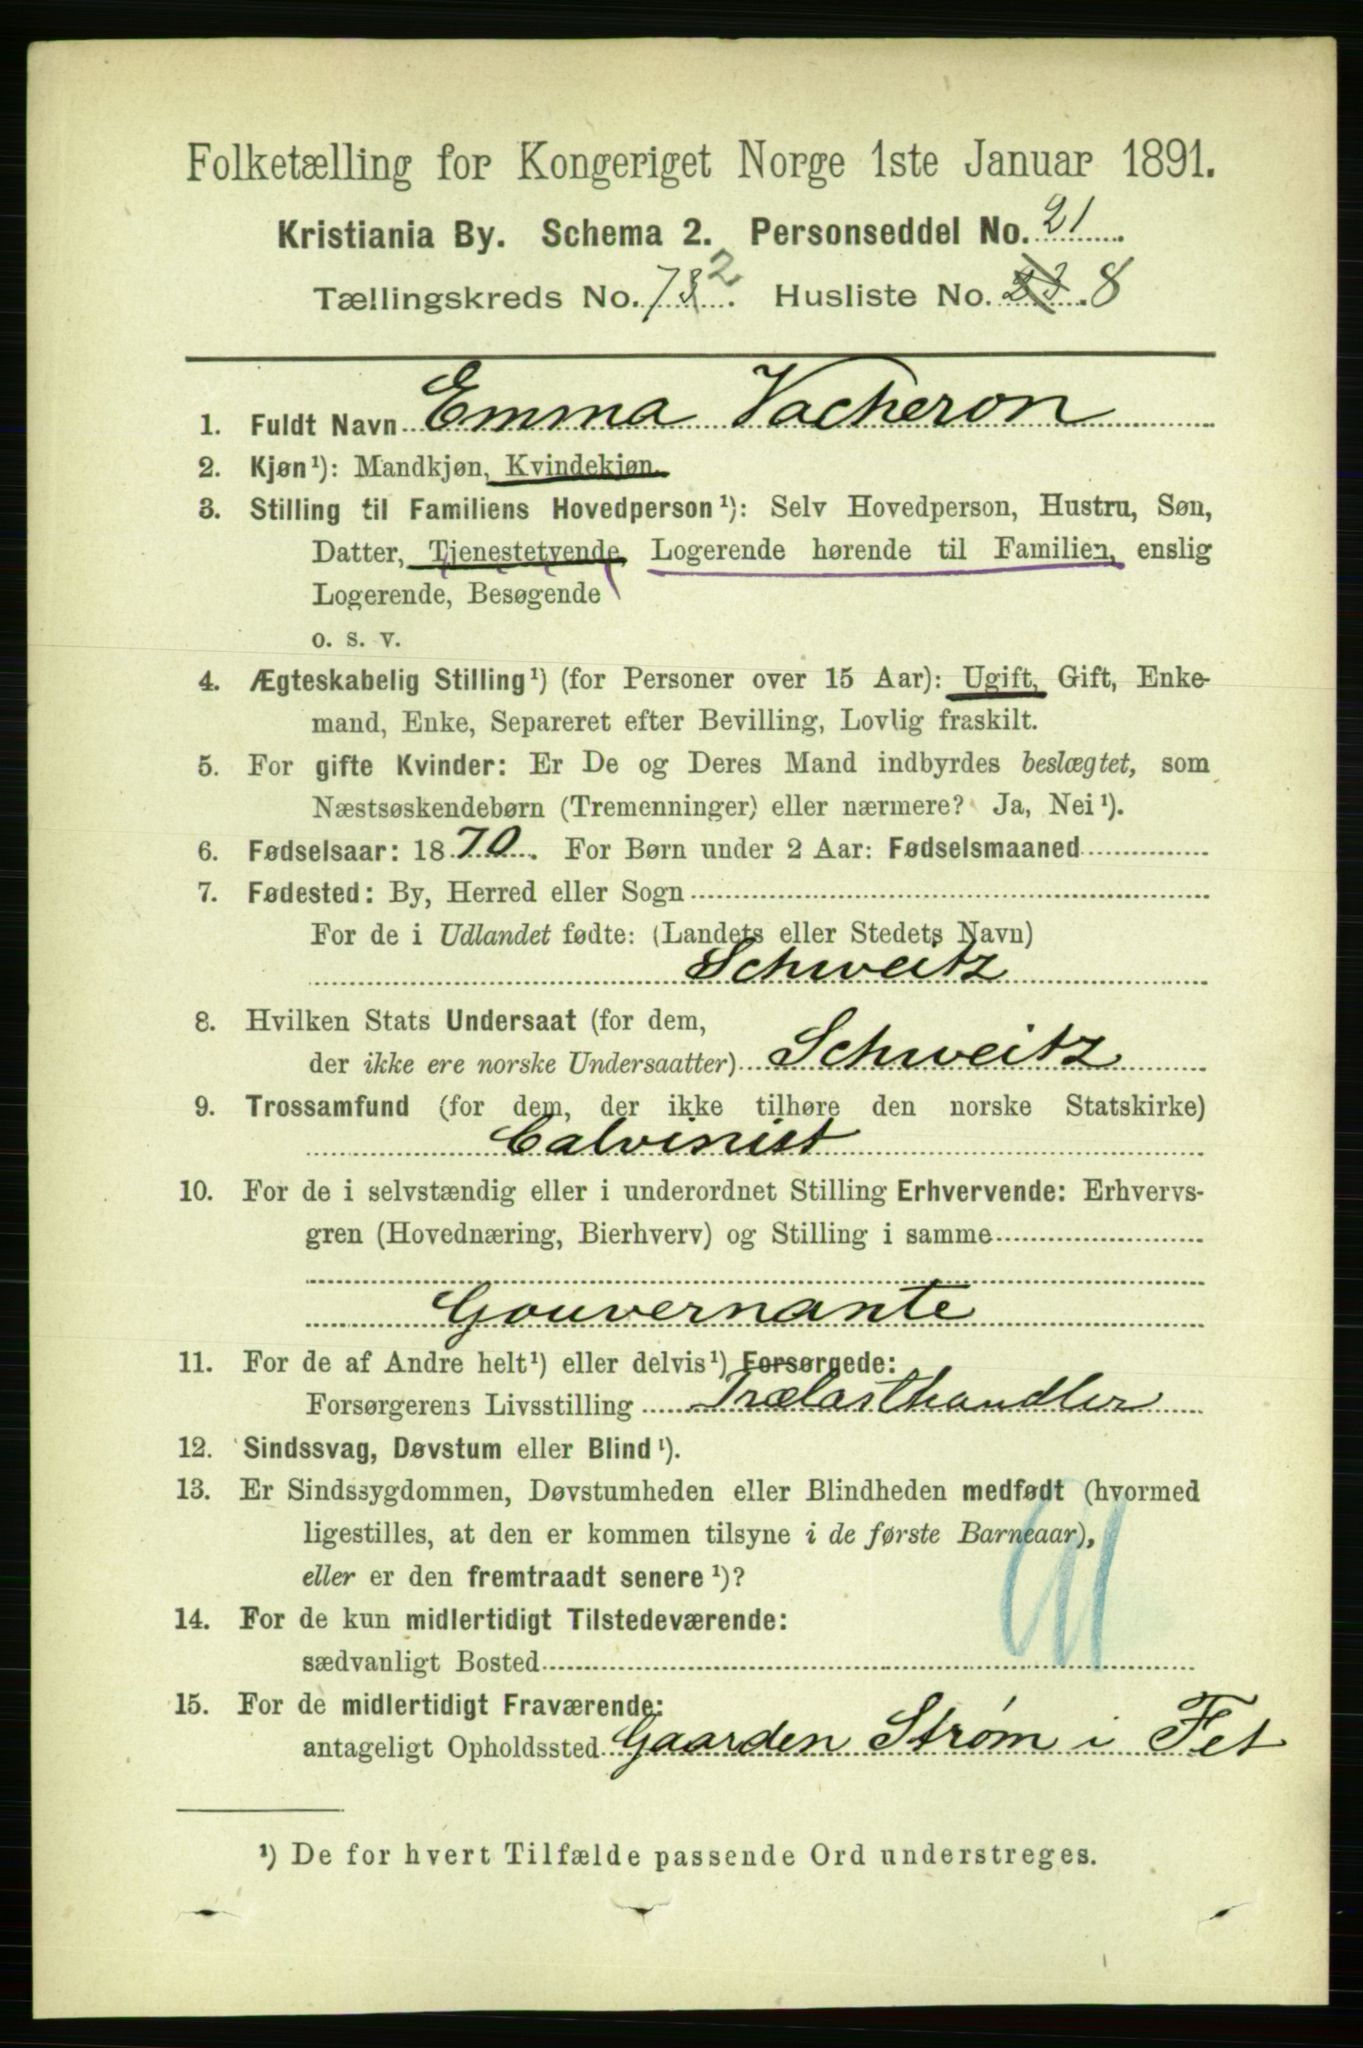 Folketælling for Kongeriget Norge 1ste Januar 1891.
Kristiania By. Schema 2. Personseddel No. 21
Tællingskreds No. 732. Husliste No. 8
1. Fuldt Navn Emma Vacheron
2. Kjøn¹): Mandkjøn, Kvindekjøn.
3. Stilling til Familiens Hovedperson¹): Selv Hovedperson, Hustru, Søn,
Datter, Tjenestetyende, Logerende hørende til Familien, enslig
Logerende, Besøgende
o. s. v.
4. Ægteskabelig Stilling¹) (for Personer over 15 Aar): Ugift, Gift, Enke-
mand, Enke, Separeret efter Bevilling, Lovlig fraskilt.
5. For gifte Kvinder: Er De og Deres Mand indbyrdes beslægtet, som
Næstsøskendebørn (Tremenninger) eller nærmere? Ja, Nei¹).
6. Fødselsaar: 1870. For Børn under 2 Aar: Fødselsmaaned
7. Fødested: By, Herred eller Sogn
For de i Udlandet fødte: (Landets eller Stedets Navn)
Schweitz
8. Hvilken Stats Undersaat (for dem,
der ikke ere norske Undersaatter) Schweitz
9. Trossamfund (for dem, der ikke tilhøre den norske Statskirke)
Calvinist
10. For de i selvstændig eller i underordnet Stilling Erhvervende: Erhvervs-
gren (Hovednæring, Bierhverv) og Stilling i samme
Gouvernante
11. For de af Andre helt¹) eller delvis¹) Forsørgede:
Forsørgerens Livsstilling Trælasthandler
12. Sindssvag, Døvstum eller Blind¹).
13. Er Sindssygdommen, Døvstumheden eller Blindheden medfødt (hvormed
ligestilles, at den er kommen tilsyne i de første Barneaar),
eller er den fremtraadt senere¹)?
14. For de kun midlertidigt Tilstedeværende:
sædvanligt Bosted
15. For de midlertidigt Fraværende:
antageligt Opholdssted Gaarden Strøm i Fet
¹) De for hvert Tilfælde passende Ord understreges.